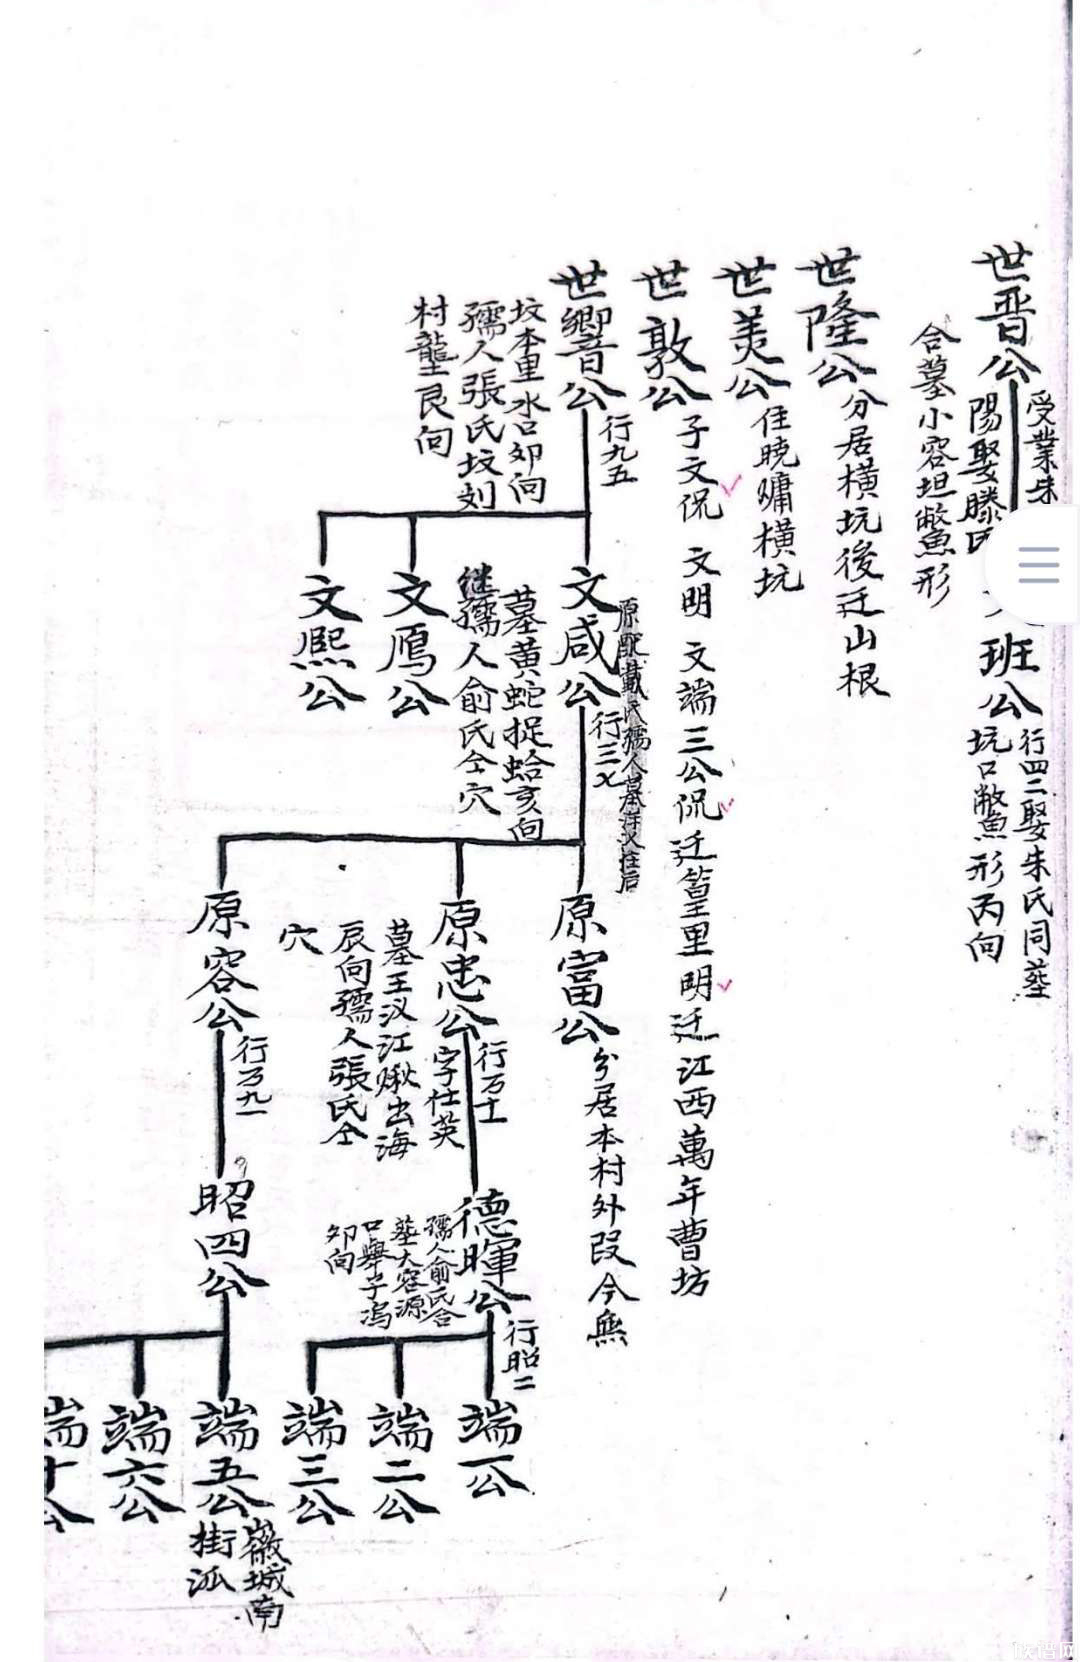 世晋公
受業朱
陽娶滕氏
合墓小容坦鱉形
班公
行四二娶朱氏同葬
坑口鱉形丙向
世隆公
分居橫坑後迁山根
世美公
住曉鏞橫坑
世敦公
子文侃 文明 文端三公侃迁篁里明迁江西萬年曹坊
世卿音公
行九五
坟本里水口卯向
孺人張氏坟刘
村壟艮向
文咸公
原配戴氏孺人墓
行三七
墓黄蛇捉蛤亥向
継孺人俞氏仝穴
文鳫公
文熈公
原富公
分居本村外段今無
原忠公
行万十
字仕英
墓王汊江鰍出海
辰向孺人張氏仝
穴
原容公
行万九一
德暉公
行昭二
孺人俞氏合
葬大容源
口
卯向
昭四公
端一公
端二公
端三公
端五公
徽城南
街
端六公
端十公